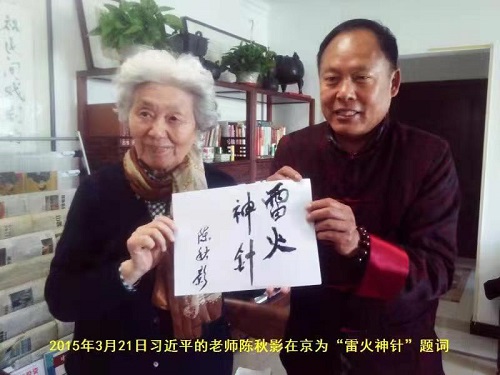 雷火
神針
陈秋影
2015年3月21日习近平的老师陈秋影在京为“雷火神针”题词